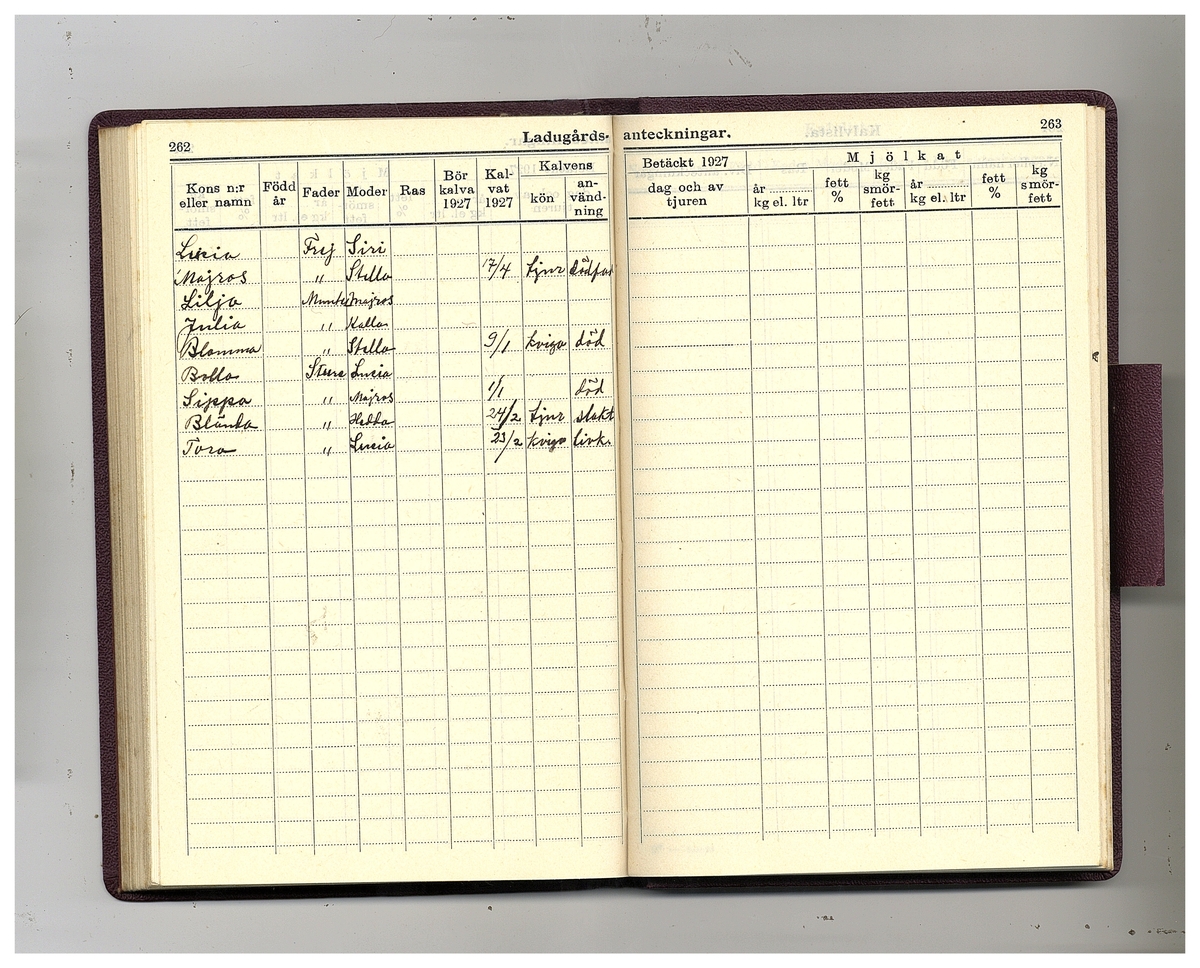 262
Ladugårds-anteckningar.
263
Kons n:r eller namn
Född år
Fader
Moder
Ras
Bör kalva 1927
Kal-vat 1927
Kalvens
kön
an-vänd-ning
Betäckt 1927
dag och av tjuren
Mjölkat
år
kg el. ltr
fett %
kg smör-fett
år
kg el. ltr
fett %
kg smör-fett
Lucia Frej Siri
Majros " Stella 17/4 tjur dödföd
Lilja Munter Majros
Julia " Kalla
Blomma " Stella 9/1 kviga död
Bolla Sture Lucia
Sippa " Majros 1/1 död
Blända " Hedda 24/2 tjur slakt
Tora " Lucia 23/2 kviga livk.